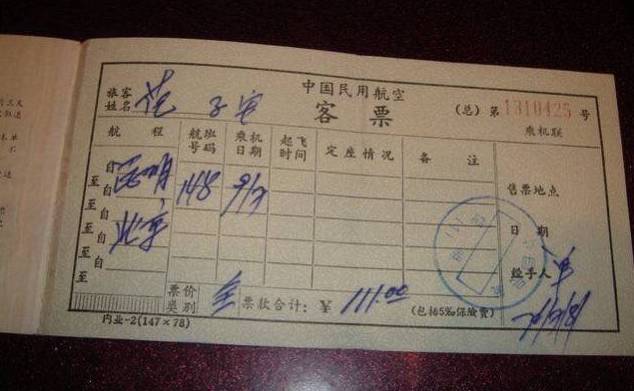 中国民用航空
旅客姓名
客票
(总) 第 1310425 号
乘机联
航程 航班号码 乘机日期 起飞时间 定座情况 备注
自 昆明 148 9/7
至
自 北京
至
自
至
自
至
售票地点
日期
经手人
票价类别 全 票款合计: ¥ 111.00 (包括5‰保险费)
内业-2(147×78)